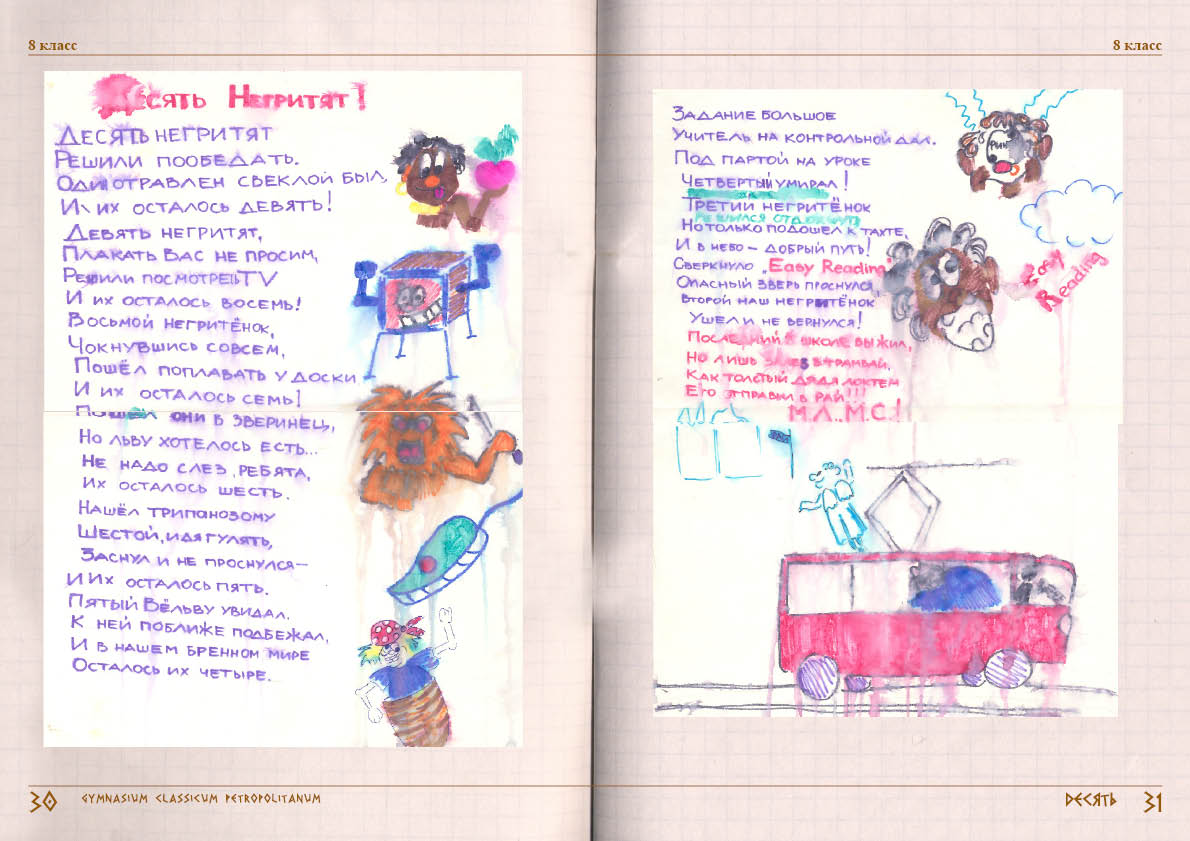 8 класс
Десять Негритят!
Десять негритят
Решили пообедать.
Один отравлен свеклой был,
И их осталось девять!
Девять негритят,
Плакать Вас не просим,
Решили посмотреть TV
И их осталось восемь!
Восьмой негритёнок,
Чокнувшись совсем,
Пошёл поплавать у доски
И их осталось семь!
они в зверинец,
Но льву хотелось есть...
Не надо слез, ребята,
Их осталось шесть.
Нашёл трипанозому
Шестой, идя гулять,
Заснул и не проснулся—
И Их осталось пять.
Пятый Вёльву увидал.
К ней поближе подбежал,
И в нашем бренном мире
Осталось их четыре.
30 GYMNASIUM CLASSICUM PETROPOLITANUM
8 класс
Задание большое
Учитель на контрольной дал.
Под партой на уроке
Четвертый умирал!
Третий негритёнок
Решился отдохнуть
Но только подошел к тахте,
И в небо — добрый путь!
Сверкнуло „Easy Reading"
Опасный зверь проснулся,
Второй наш негритёнок
Ушел и не вернулся!
Последний в школе выжил,
Но лишь в трамвай,
Как толстый дядя локтем
Его отправил в рай!!!
М.Л.,М.С.!
Easy
Reading
ДЕСЯТЬ 31